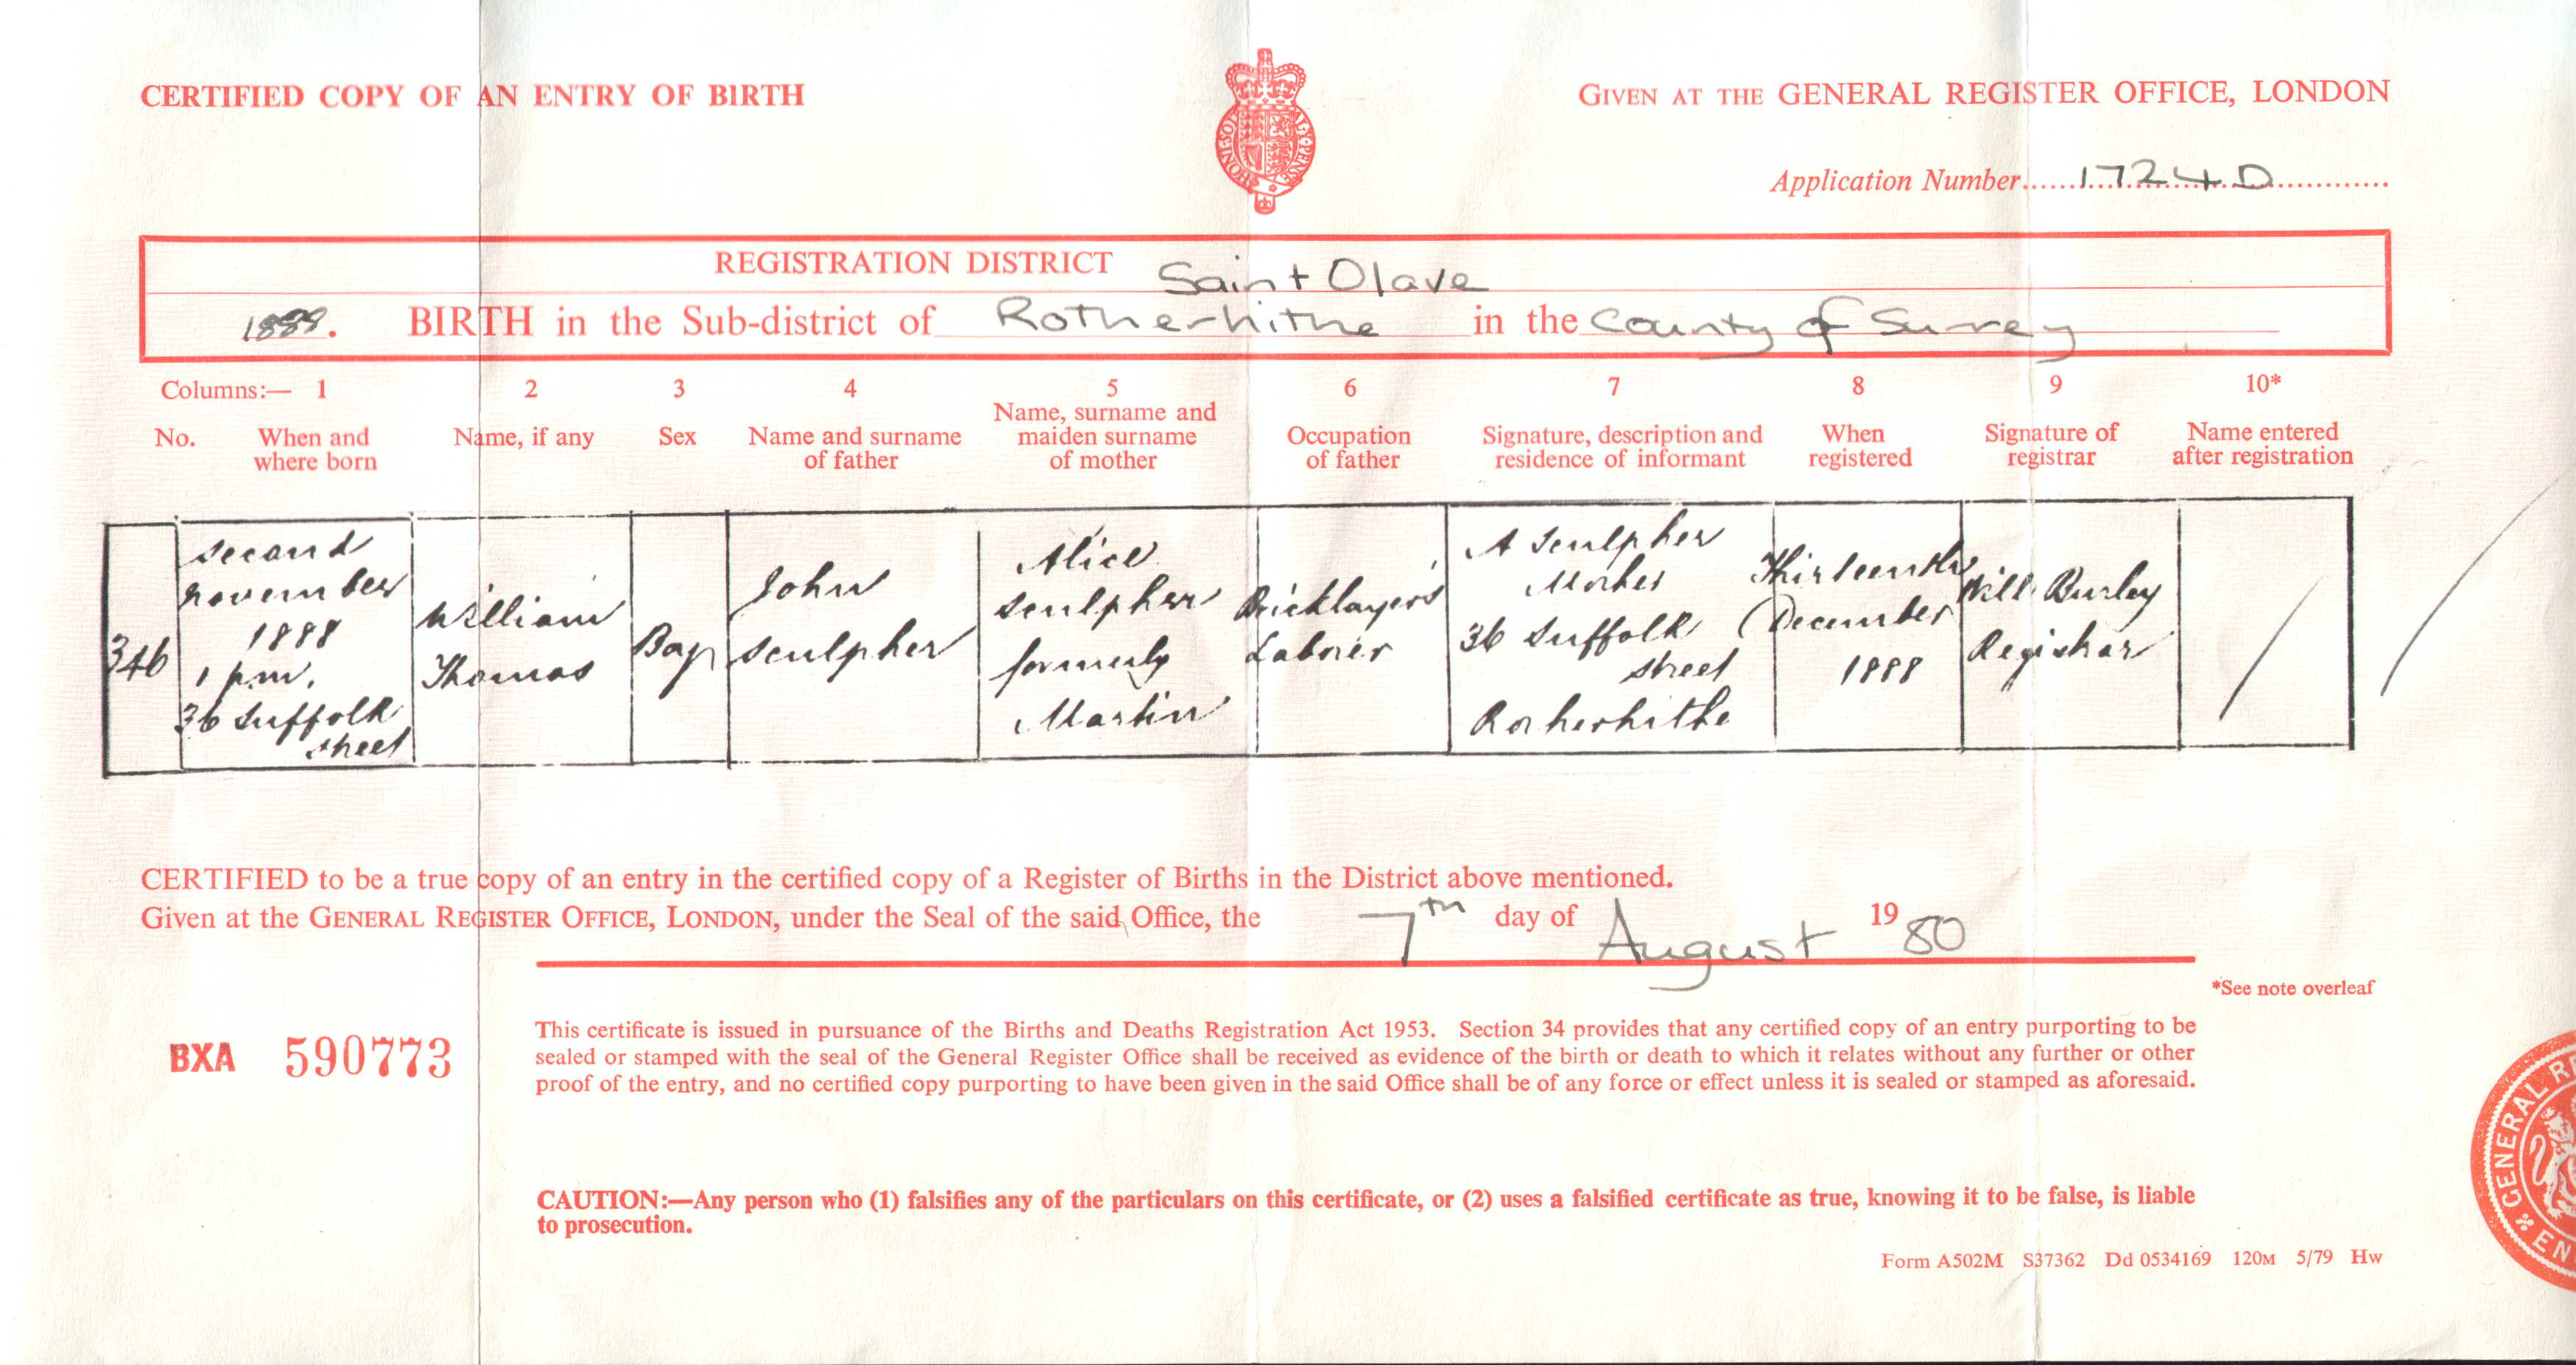 CERTIFIED COPY OF AN ENTRY OF BIRTH
GIVEN AT THE GENERAL REGISTER OFFICE, LONDON
Application Number 1724D
REGISTRATION DISTRICT Saint Olave
1888. BIRTH in the Sub-district of Rotherhithe in the County of Surrey
Columns:— 1 2 3 4 5 6 7 8 9 10*
No.
When and
where born
Name, if any
Sex
Name and surname
of father
Name, surname and
maiden surname
of mother
Occupation
of father
Signature, description and
residence of informant
When
registered
Signature of
registrar
Name entered
after registration
346
second
november
1888
1 pm.
36 Suffolk
street
William
Thomas
Boy
John
Sculpher
Alice
Sculpher
formerly
Martin
Bricklayer's
Laborer
A Sculpher
Mother
36 Suffolk
street
Rotherhithe
Thirteenth
December
1888
Will. Burley
Registrar
CERTIFIED to be a true copy of an entry in the certified copy of a Register of Births in the District above mentioned.
Given at the GENERAL REGISTER OFFICE, LONDON, under the Seal of the said Office, the 7th day of August 1980
*See note overleaf
BXA 590773
This certificate is issued in pursuance of the Births and Deaths Registration Act 1953. Section 34 provides that any certified copy of an entry purporting to be
sealed or stamped with the seal of the General Register Office shall be received as evidence of the birth or death to which it relates without any further or other
proof of the entry, and no certified copy purporting to have been given in the said Office shall be of any force or effect unless it is sealed or stamped as aforesaid.
CAUTION:—Any person who (1) falsifies any of the particulars on this certificate, or (2) uses a falsified certificate as true, knowing it to be false, is liable
to prosecution.
Form A502M S37362 Dd 0534169 120M 5/79 Hw
GENERAL